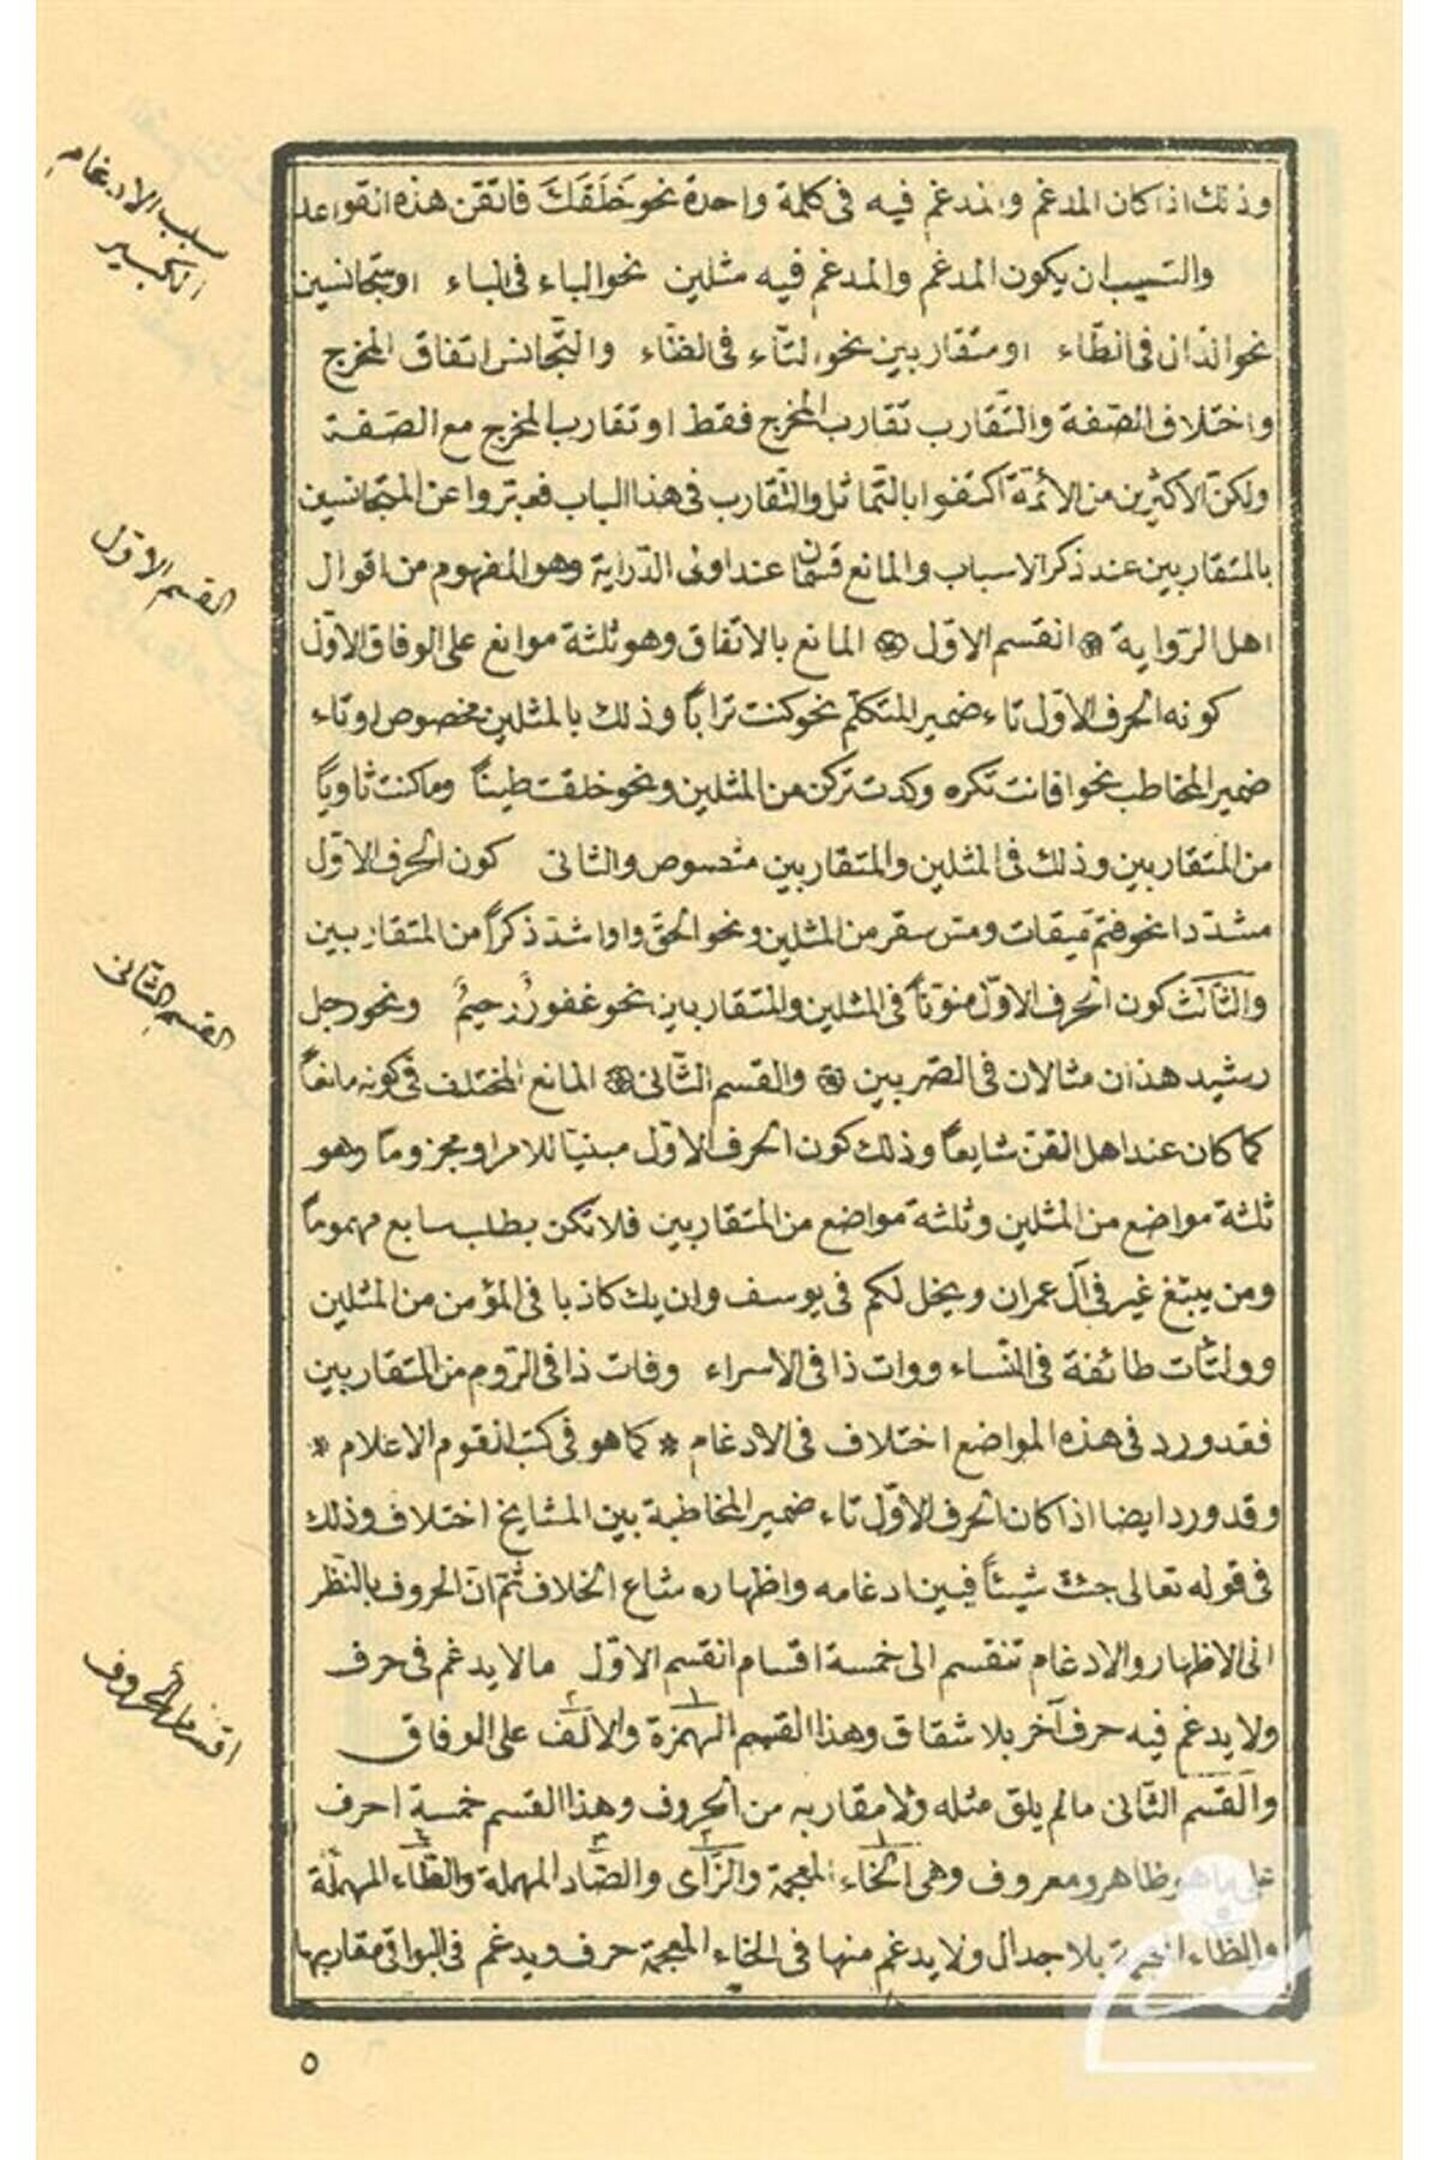 وذلك اذا كان المدغم والمدغم فيه فى كلمة واحدة نحو خَلَقَكَ فاتقن هذه القواعد
والسبب ان يكون المدغم والمدغم فيه مثلين نحو الباء فى الباء او متجانسين
نحو الذال فى الظاء او متقاربين نحو التاء فى الظاء والتجانس اتفاق المخرج
واختلاف الصفة والتقارب تقارب المخرج فقط او تقارب المخرج مع الصفة
ولكنّ الاكثرين من الأئمة اكتفوا بالتماثل والتقارب فى هذا الباب فعبّروا عن المتجانسين
بالمتقاربين عند ذكر الاسباب والمانع قسمان عند اولى الدّراية وهو المفهوم من اقوال
اهل الرّواية القسم الاوّل المانع بالاتفاق وهو ثلثة موانع على الوفاق الاوّل
كونه الحرف الاوّل تاء ضمير المتكلّم نحو كنت تراباً وذلك بالمثلين مخصوص او تاء
ضمير المخاطب نحو افانت تكره وكدت تركن من المثلين ونحو خلقت طيناً وما كنت ثاوياً
من المتقاربين وذلك فى المثلين والمتقاربين منصوص والثانى كون الحرف الاوّل
مشدّدا نحو فتمّ ميقات ومسّ سقر من المثلين ونحو الحقّ واو اشدّ ذكراً من المتقاربين
والثالث كون الحرف الاوّل منوّناً فى المثلين والمتقاربين نحو غفورٌ رحيمٌ ونحو رجل
رشيد هذان مثالان فى الضربين والقسم الثّانى المانع المختلف فى كونه مانعاً
كما كان عند اهل الفنّ شايعاً وذلك كون الحرف الاوّل مبنيّا للامر او مجزوماً وهو
ثلثة مواضع من المثلين وثلثة مواضع من المتقاربين فلا تكن بطلب سابع مهموماً
ومن يبتغ غير فى آل عمران ويخل لكم فى يوسف وان يك كاذبا فى المؤمن من المثلين
وولتأت طائفة فى النّساء ووات ذا فى الاسراء وفات ذا فى الرّوم من المتقاربين
فقد ورد فى هذه المواضع اختلاف فى الادغام * كما هو فى كتب القوم الاعلام *
وقد ورد ايضا اذا كان الحرف الاوّل تاء ضمير المخاطبة بين المشايخ اختلاف وذلك
فى قوله تعالى جئت شيئاً فبين ادغامه واظهاره شاع الخلاف ثمّ انّ الحروف بالنّظر
الى الاظهار والادغام تنقسم الى خمسة اقسام القسم الاوّل ما لا يدغم فى حرف
ولا يدغم فيه حرف آخر بلا شقاق وهذا القسم الهمزة والالف على الوفاق
والقسم الثّانى ما لم يلق مثله ولا مقاربه من الحروف وهذا القسم خمسة احرف
على ما هو ظاهر ومعروف وهى الخاء المعجمة والزّاى والصّاد المهملة والطّاء المهملة
والظاء المعجمة بلا جدال ولا يدغم منها فى الخاء المعجمة حرف ويدغم فى البواقى مقاربها
سبب الادغام
الكبير
القسم الاوّل
القسم الثّانى
اقسام الحروف
٥